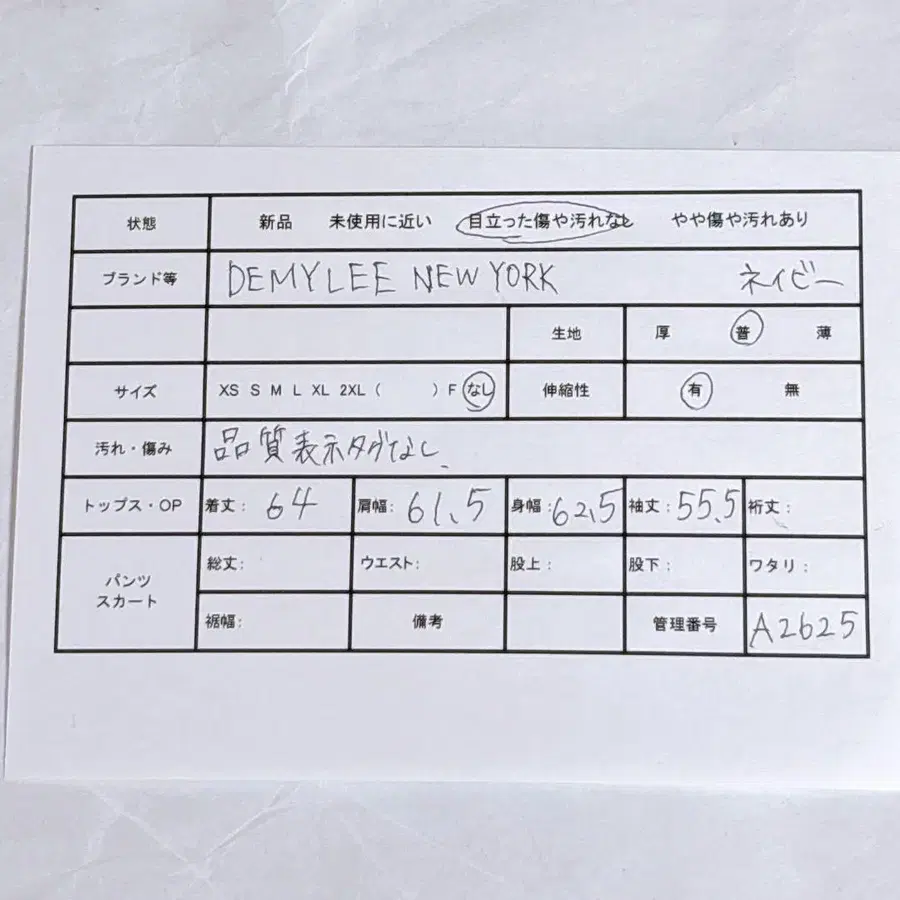 状態 新品 未使用に近い 目立った傷や汚れなし やや傷や汚れあり
ブランド等 DEMYLEE NEW YORK ネイビー
生地 厚 普 薄
サイズ XS S M L XL 2XL ( ) F なし 伸縮性 有 無
汚れ・傷み 品質表示タグなし、
トップス・OP 着丈: 64 肩幅: 61.5 身幅: 62.5 袖丈: 55.5 裄丈:
パンツ
スカート
総丈: ウエスト: 股上: 股下: ワタリ:
裾幅: 備考 管理番号 A2625